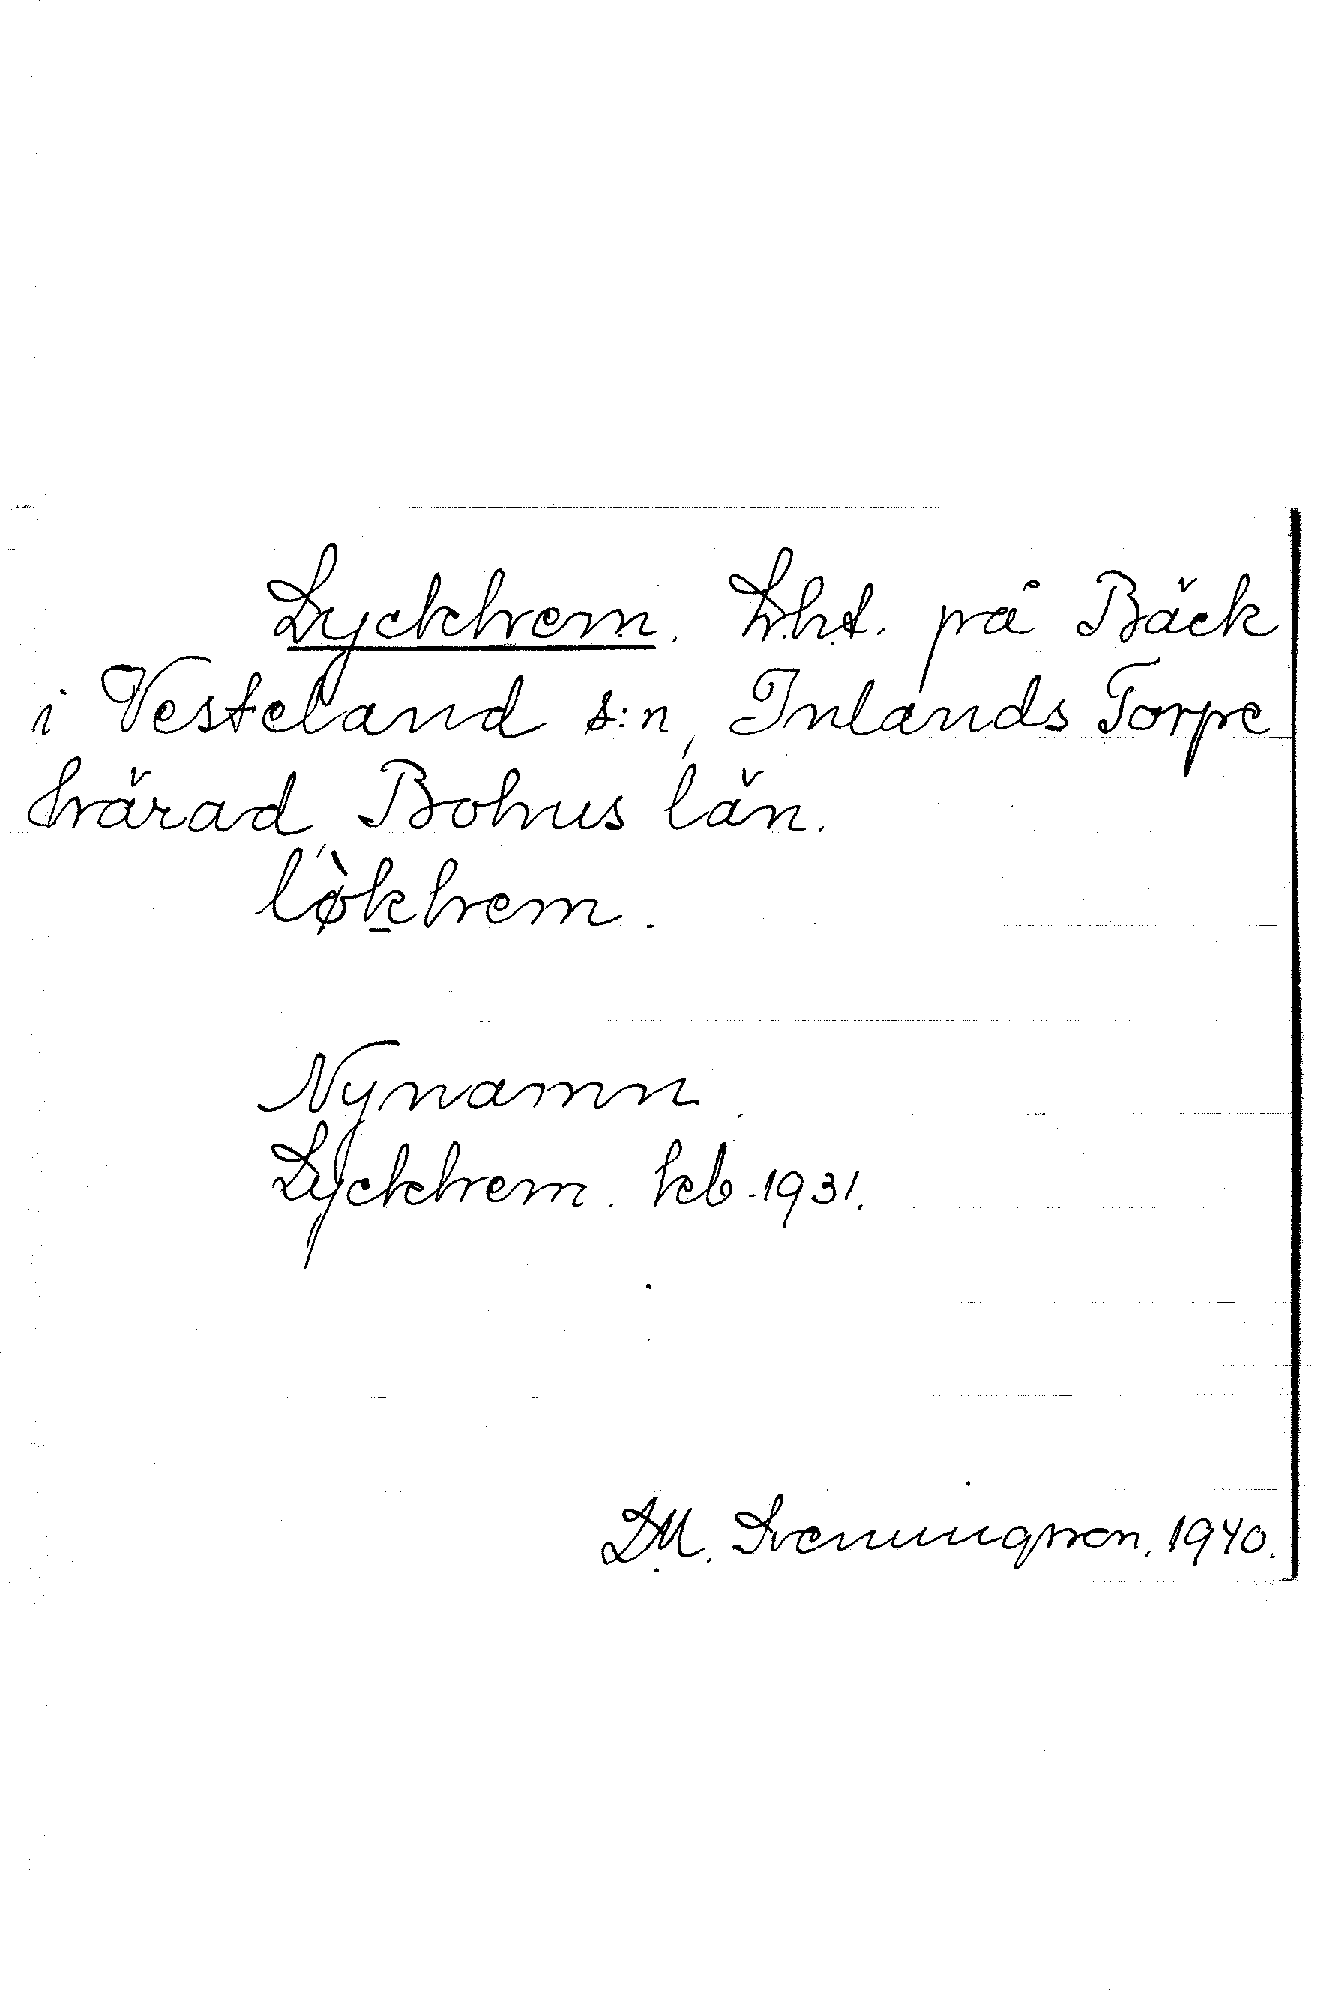 Lyckhem. Lht. på Bäck
i Vesteland s:n, Inlands Torpe
härad, Bohus län.
lø̀khem.
Nynamn
Lyckhem. kb 1931.
D.M. Sveningsson. 1940.